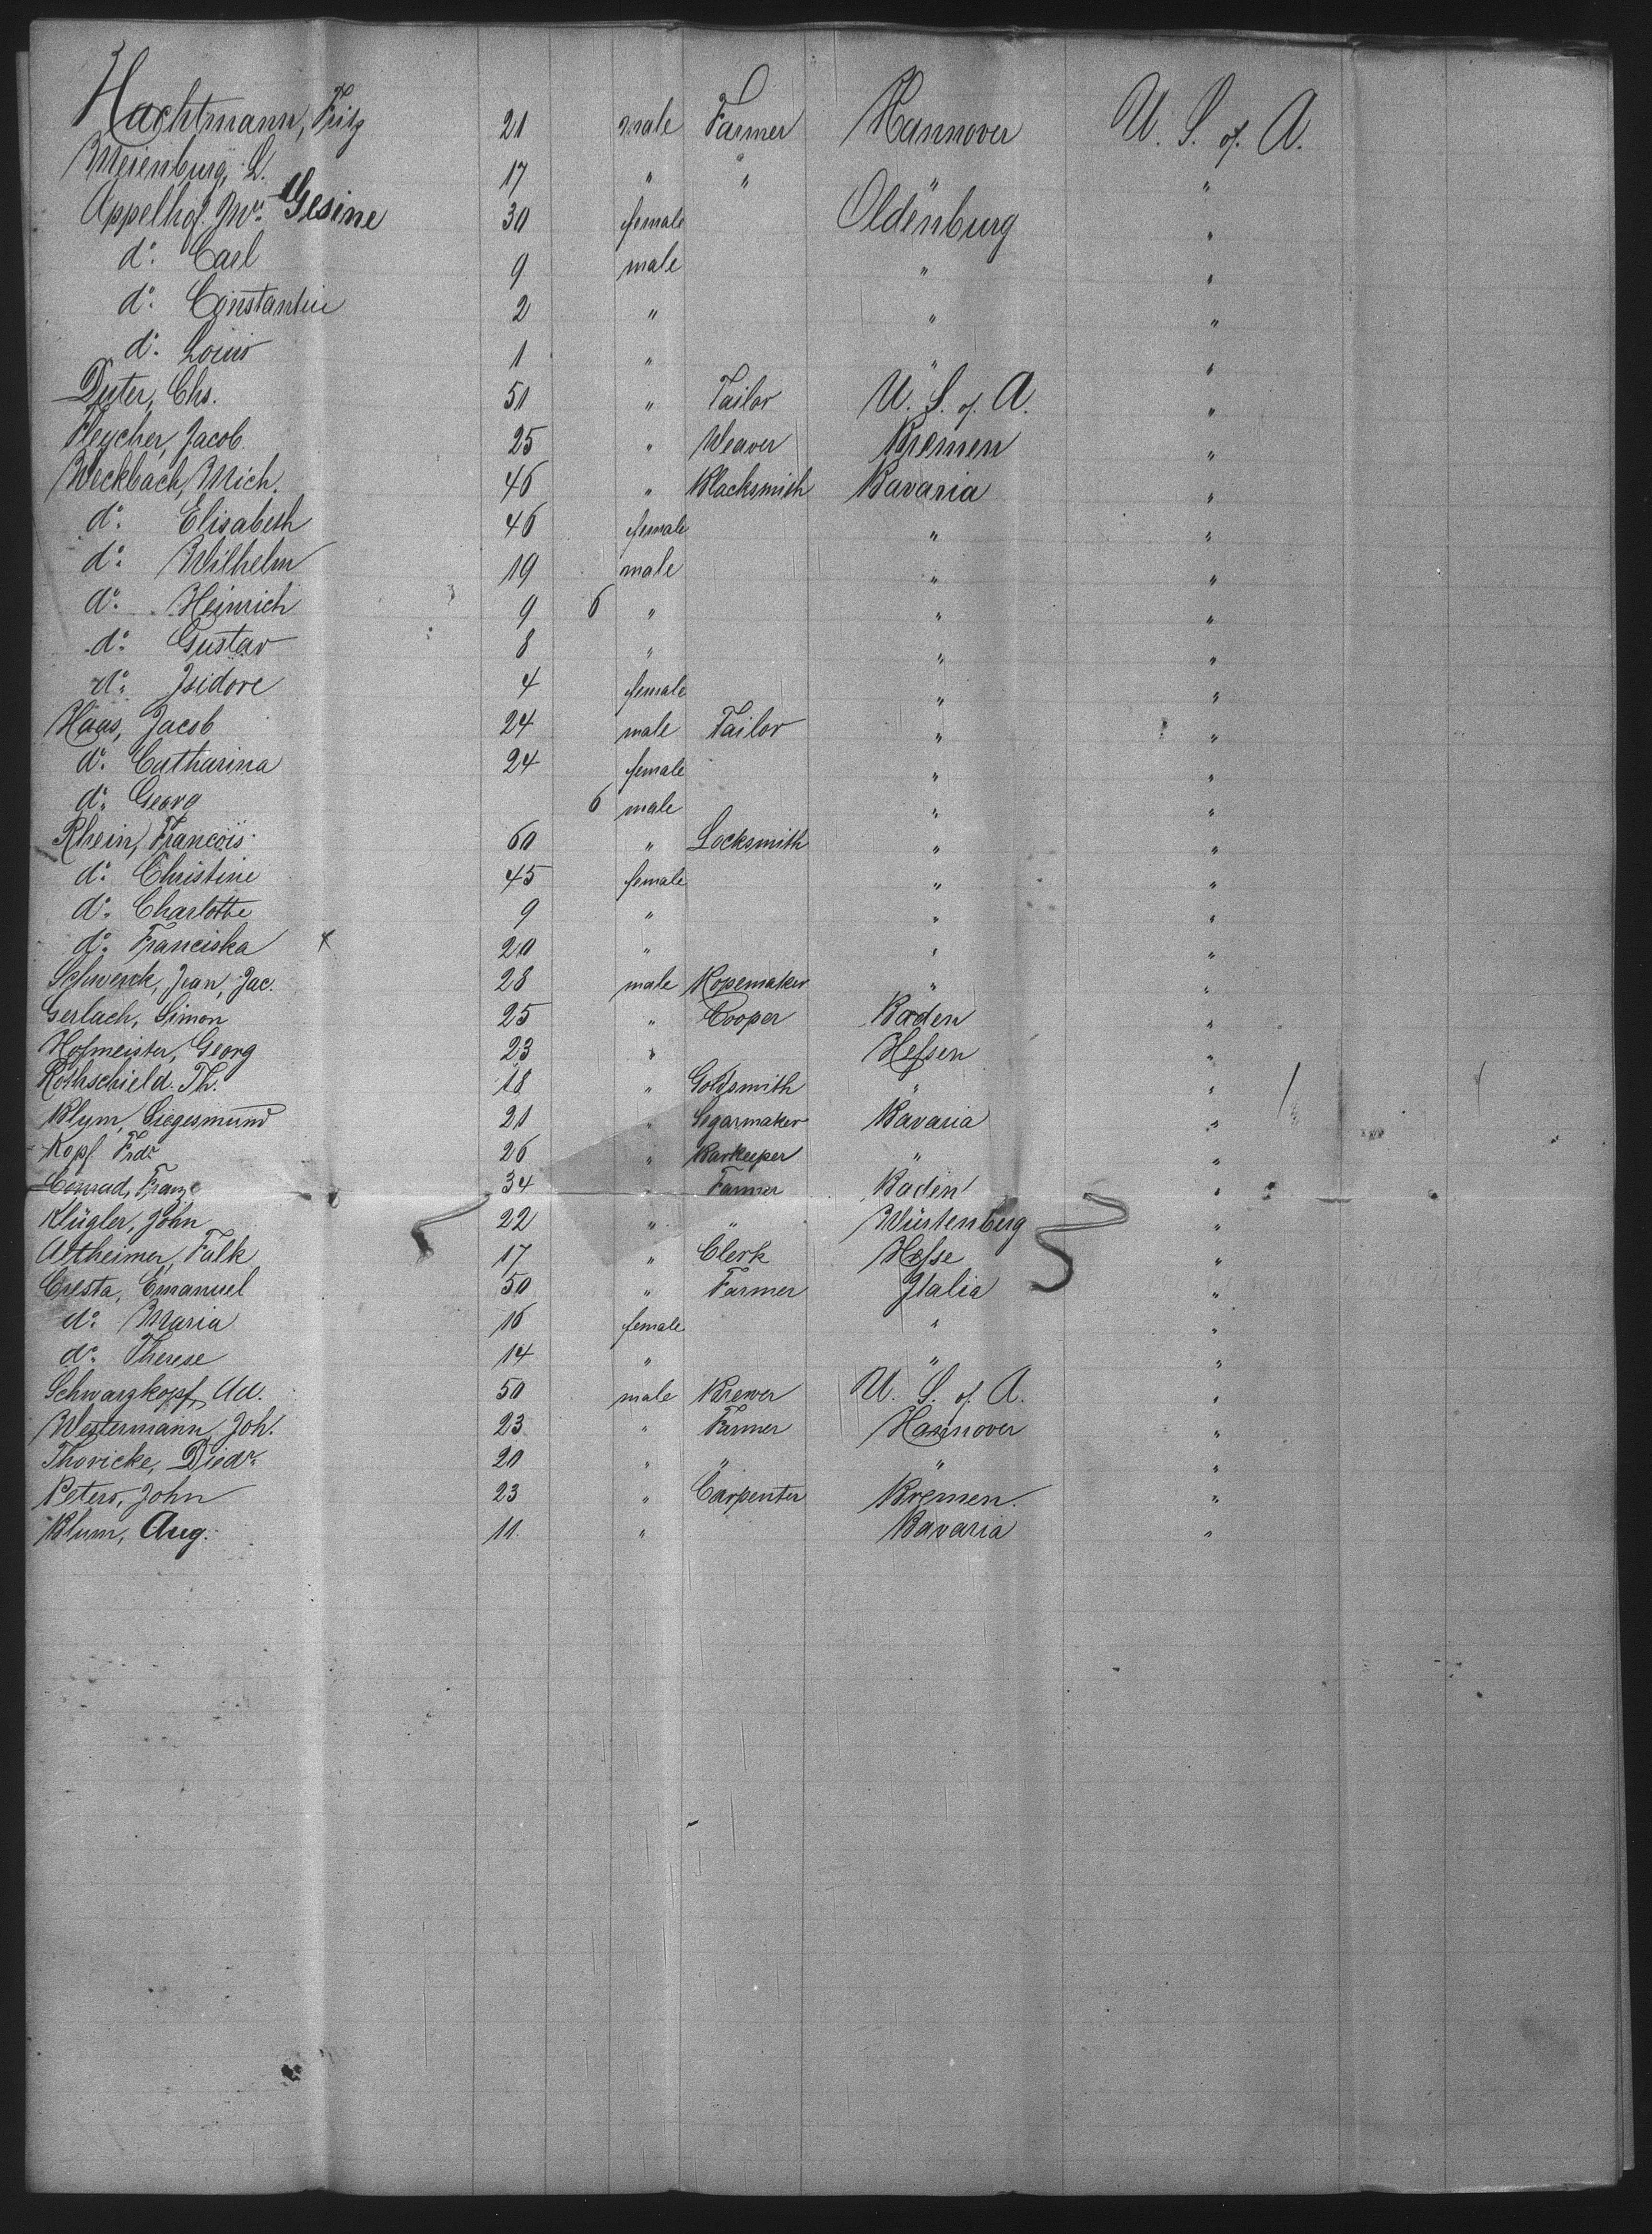 Hachtmann, Fritz 21 male Farmer Hannover U. S. of A.
Meienburg, L. 17 " " " "
Appelhof. Gesine 30 female Oldenburg "
do. Carl 9 male " "
do. Constantin 2 " " "
do. Louis 1 " " "
Duter, Chs. 51 " Tailor U. S. of A. "
Fleycher, Jacob 25 " Weaver Bremen "
Weckbach, Mich. 46 " Blacksmith Bavaria "
do. Elisabeth 46 female " "
do. Wilhelm 19 male " "
do. Heinrich 9 6 " " "
do. Gustav 8 " " "
do. Isidore 4 female " "
Haas, Jacob 24 male Tailor " "
do. Catharina 24 female " "
do. Georg 6 male " "
Rhein, Francois 60 " Locksmith " "
do. Christine 45 female " "
do. Charlotte 9 " " "
do. Franciska x 20 " " "
Schwenck, Jean, Jac. 28 male Ropemaker " "
Gerlach, Simon 25 " Cooper Baden "
Hofmeister, Georg 23 " Hessen "
Rothschield. Th. 18 " Goldsmith " "
Blym, Siegesmund 21 " Segarmaker Bavaria "
Kopf Frdr 26 " Barkeeper " "
Conrad, Franz 34 " Farmer Baden "
Klügler, John 22 " " Würtenberg "
Altheimer, Falk 17 " Clerk Hesse "
Cresta, Emanuel 50 " Farmer Italia "
do. Maria 16 female " "
do. Therese 14 " " "
Schwarzkopf, Ad. 50 male Brewer U. S. of A. "
Westermann, Joh. 23 " Farmer Hannover "
Thoricke, Diedr. 20 " " " "
Peters, John 23 " Carpenter Bremen. "
Blum, Aug. 11 " Bavaria "